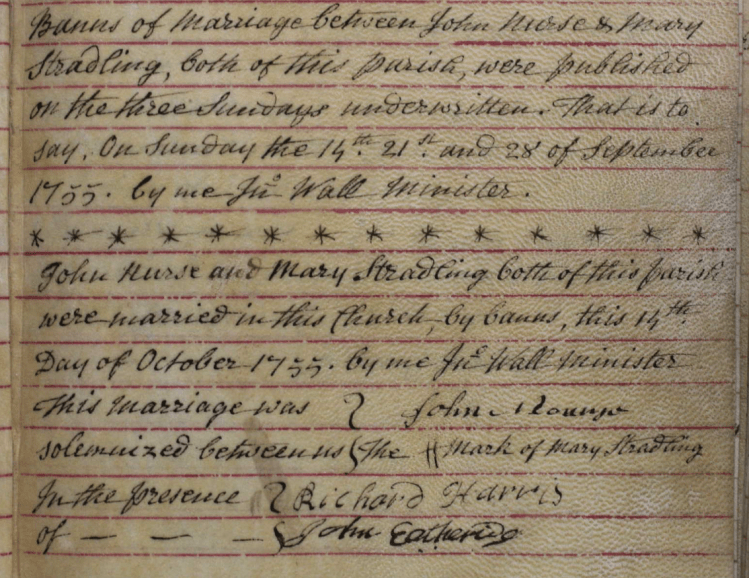 Banns of Marriage between John Nurse & Mary
Stradling, both of this parish, were published
on the three Sundays underwritten. That is to
say, On Sunday the 14th. 21st. and 28 of September
1755. by me Jno Wall Minister.
* * * * * * * * * * * * * *
John Nurse and Mary Stradling both of this parish
were married in this Church, by banns, this 14th.
Day of October 1755. by me Jno Wall Minister
This Marriage was } John
solemnized between us } The # Mark of Mary Stradling
In the presence } Richard Harris
of — — — } John